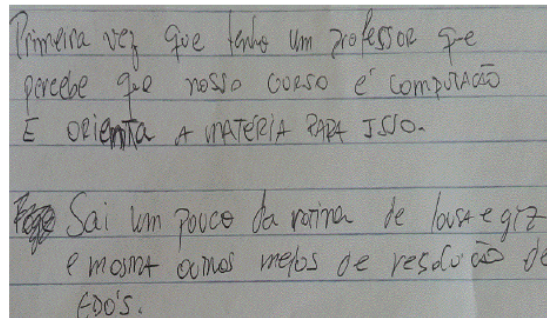 Primeira vez que tenho um professor que
percebe que nosso curso é computação
E orienta A MATÉRIA PARA ISSO.
Sai um pouco da rotina de lousa e giz
e mostra outros meios de resolução de
EDO'S.